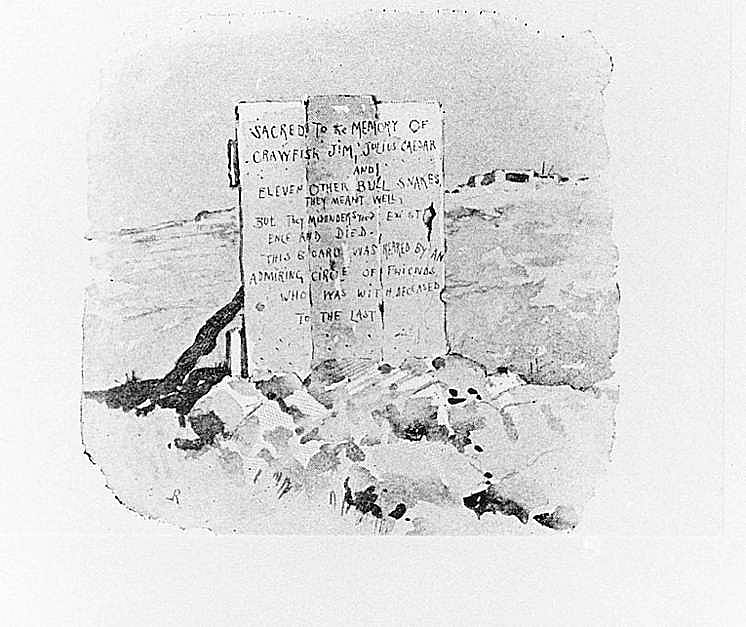 SACRED To the MEMORY OF
CRAWFISH JIM, JULIUS CAESAR
AND
ELEVEN OTHER BULL SNAKES,
THEY MEANT WELL,
BUT They MISUNDERSTOOD EXIST
ENCE AND DIED.
THIS BOARD WAS REARED BY AN
ADMIRING CIRCLE OF FRIENDS
WHO WAS WITH DECEASED
TO THE LAST
R